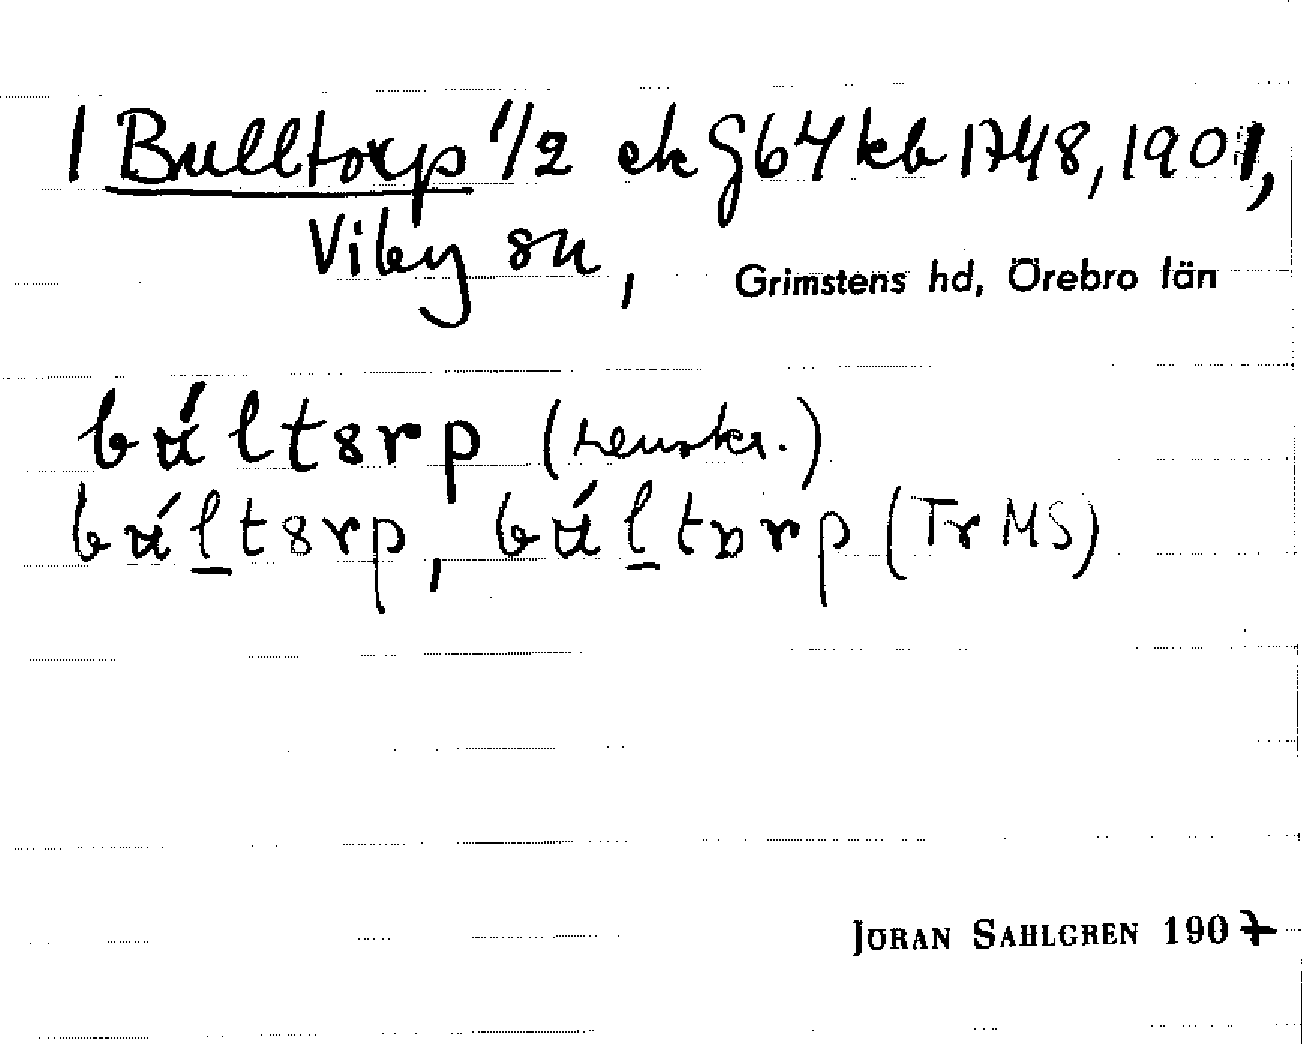 1 Bulltorp 1/2 ek G64 kb 1748, 1901,
Viby sn, Grimstens hd, Örebro län
bu̇́ltȣrp
bu̇́l̲tȣrp, bu̇́l̲tɒrp (Tr MS)
JÖRAN SAHLGREN 1907